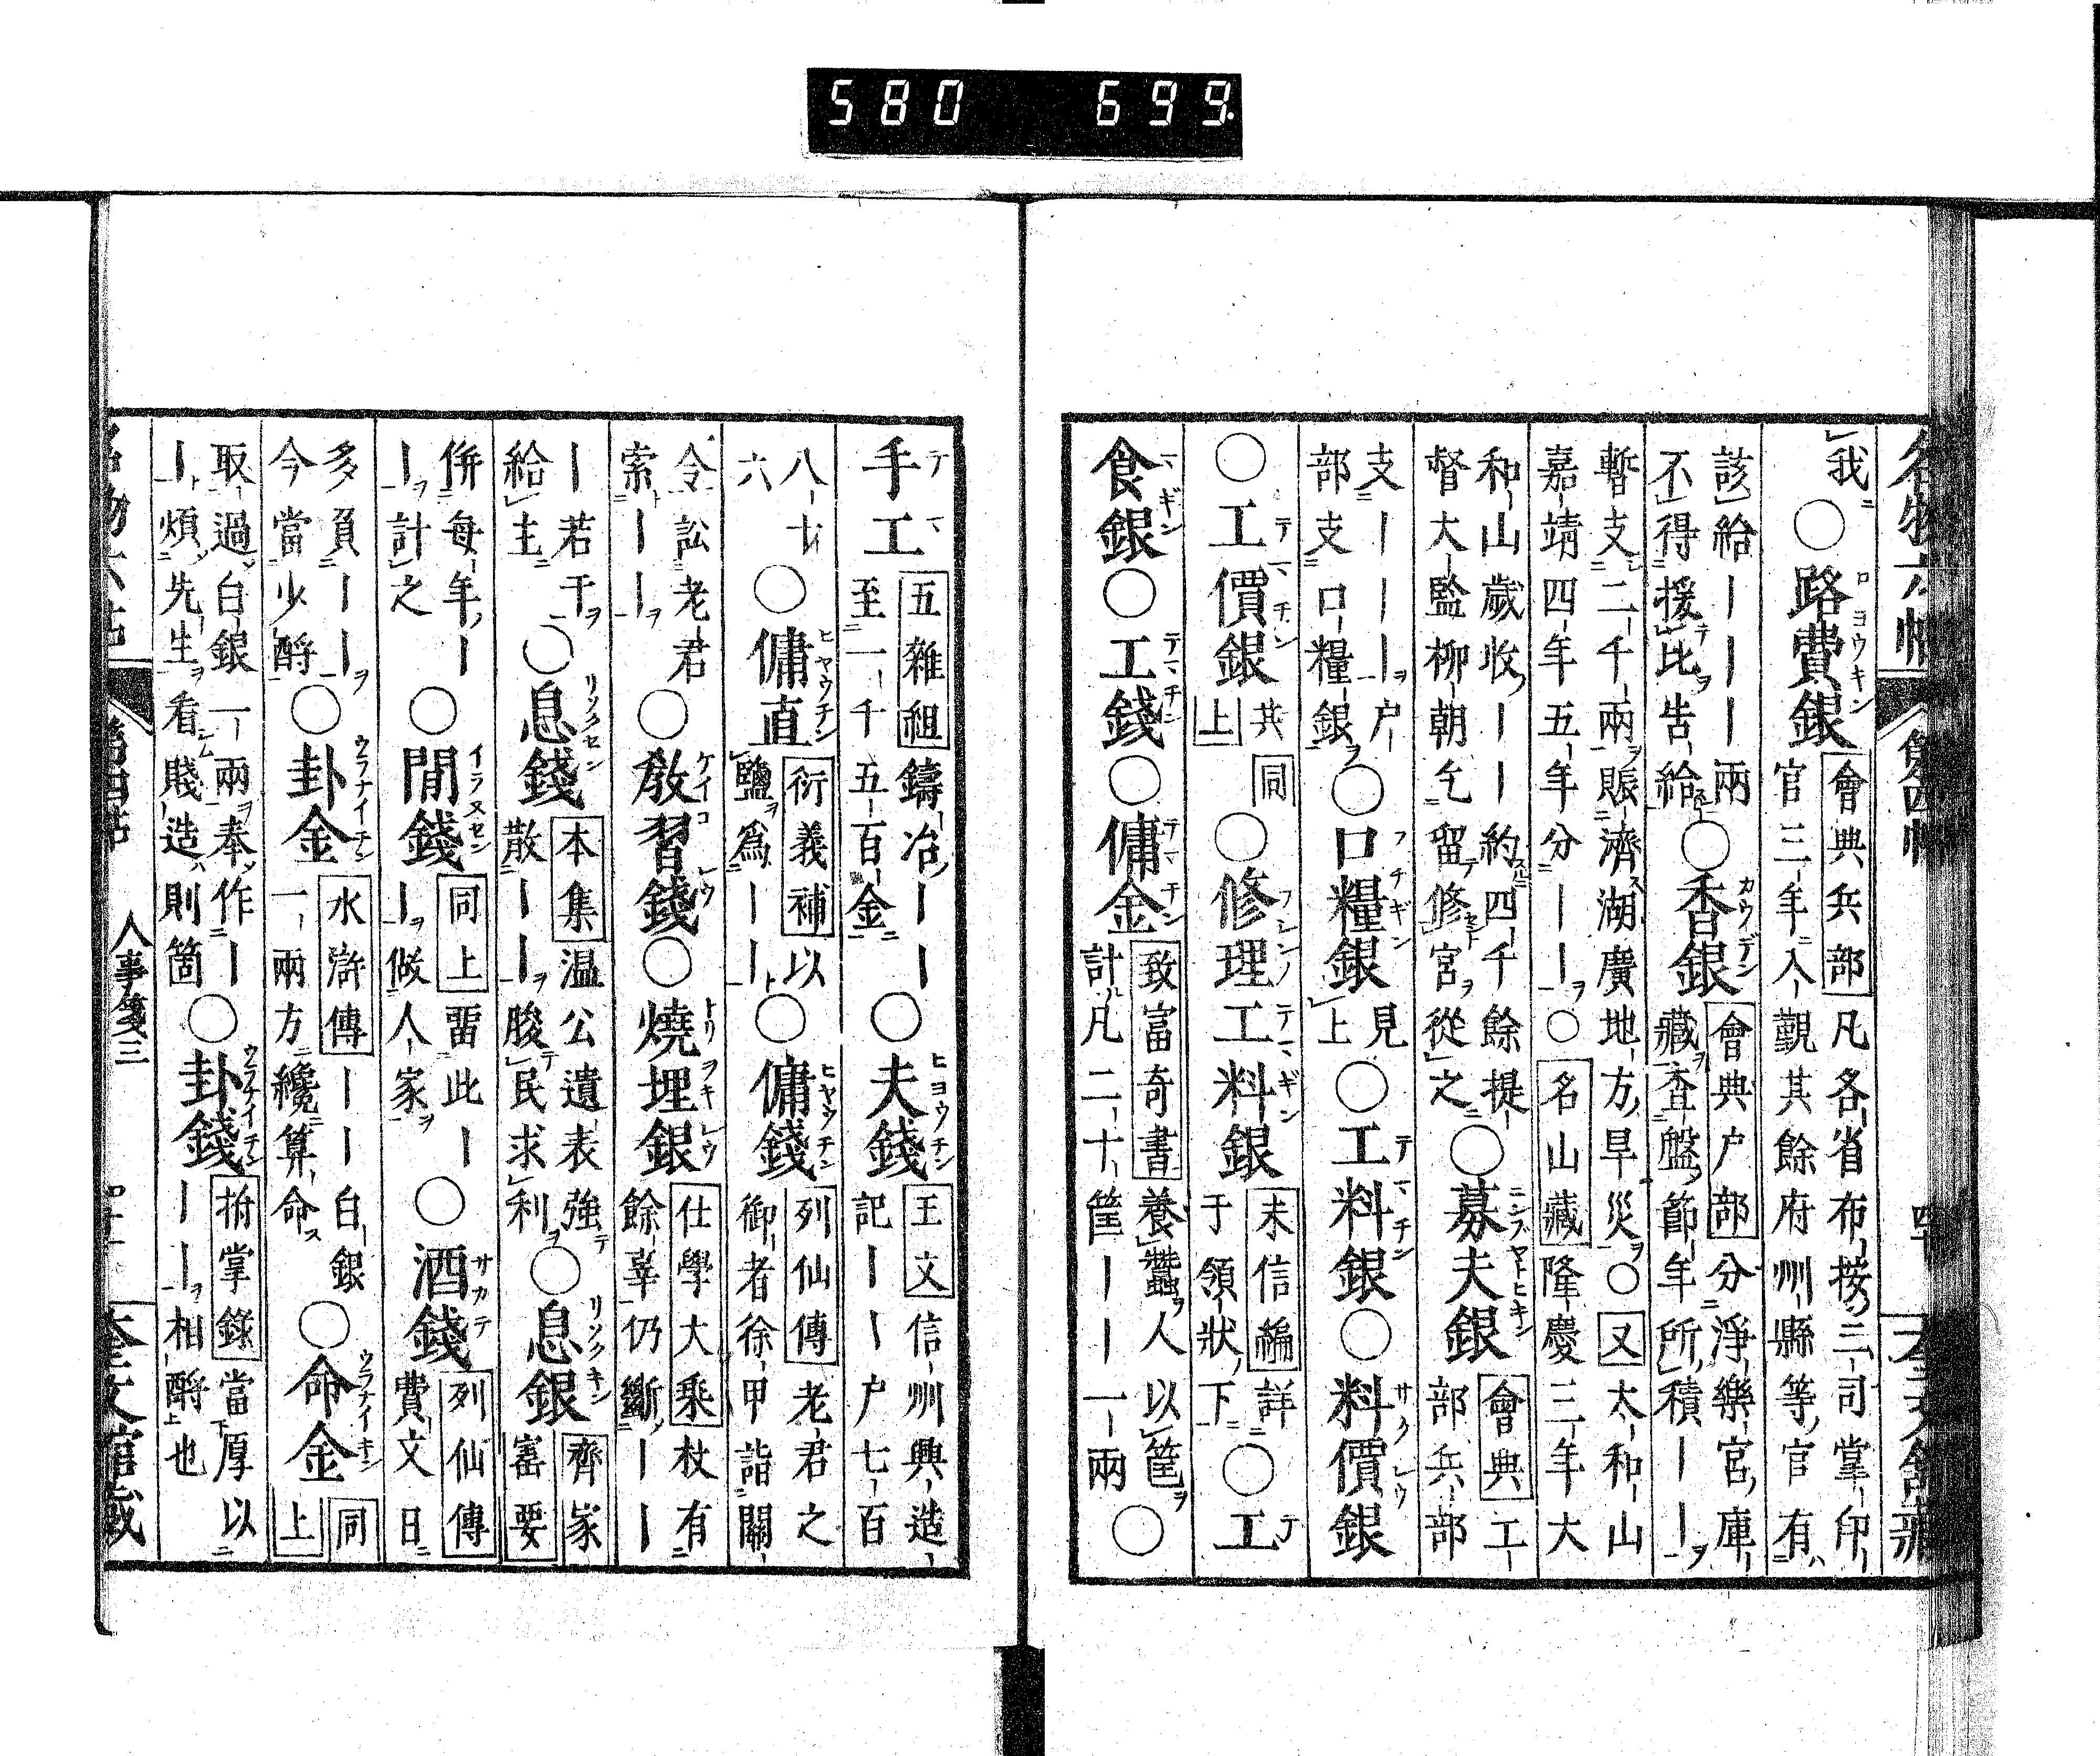 580 699
名物六帖 第四帖 四十 奎文館藏
我
○路費銀
會典兵部凡各省布按三司掌印
官三年入覲其餘府州縣等官有
該給｜｜｜兩
不得援比告給
○香銀
會典户部分淨樂宮庫
藏查盤節年所積｜｜
暫支二千兩賑濟湖廣地方旱災○又太和山
嘉靖四年五年分｜｜○名山藏隆慶三年大
和山歲收｜｜約四千餘提
督大監柳朝乞留修宮從之
○募夫銀
會典工
部兵部
支｜｜｜户
部支口糧銀
○口糧銀
見
上
○工料銀○料價銀
○工價銀
共同
上
○修理工料銀
未信編詳
于領狀下
○工
食銀○工錢○傭金
致富奇書養蠶人以筐
計凡二十筐｜｜一兩
○
手工
五雜組鑄冶｜｜
至一千五百金
○夫錢
王文信州興造
記｜｜户七百
八十
六
○傭直
衍義補以
鹽爲｜｜
○傭錢
列仙傳老君之
御者徐甲詣關
令訟老君
索｜｜
○教習錢○燒埋銀
仕學大乘杖有
餘辜仍斷｜｜
｜若干
給主
○息錢
本集温公遺表強
散｜｜朘民求利
○息銀
齊家
寳要
併每年｜
｜計之
○閒錢
同上畱此｜
｜做人家
○酒錢
列仙傳
費文日
多負｜｜
今當少酧
○卦金
水滸傳｜｜白銀
一兩方纔算命
○命金
同
上
取過白銀一兩奉作｜
｜煩先生看賤造則箇
○卦錢
拊掌錄當厚以
｜｜相酧也
名物六帖 第四帖 人事箋三 四十一 奎文館藏